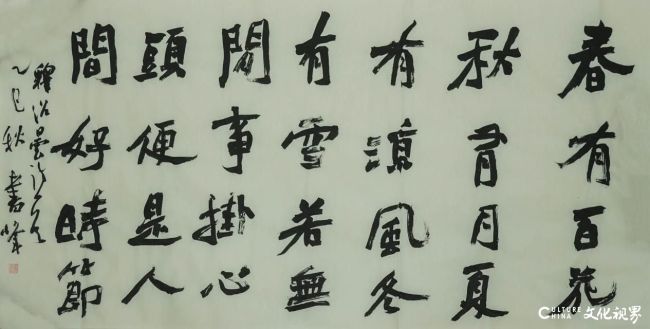 春有百花
秋有月夏
有涼風冬
有雪若無
閑事掛心
頭便是人
間好時節
乙巳秋 書峰
CULTURE CHINA 文化视界